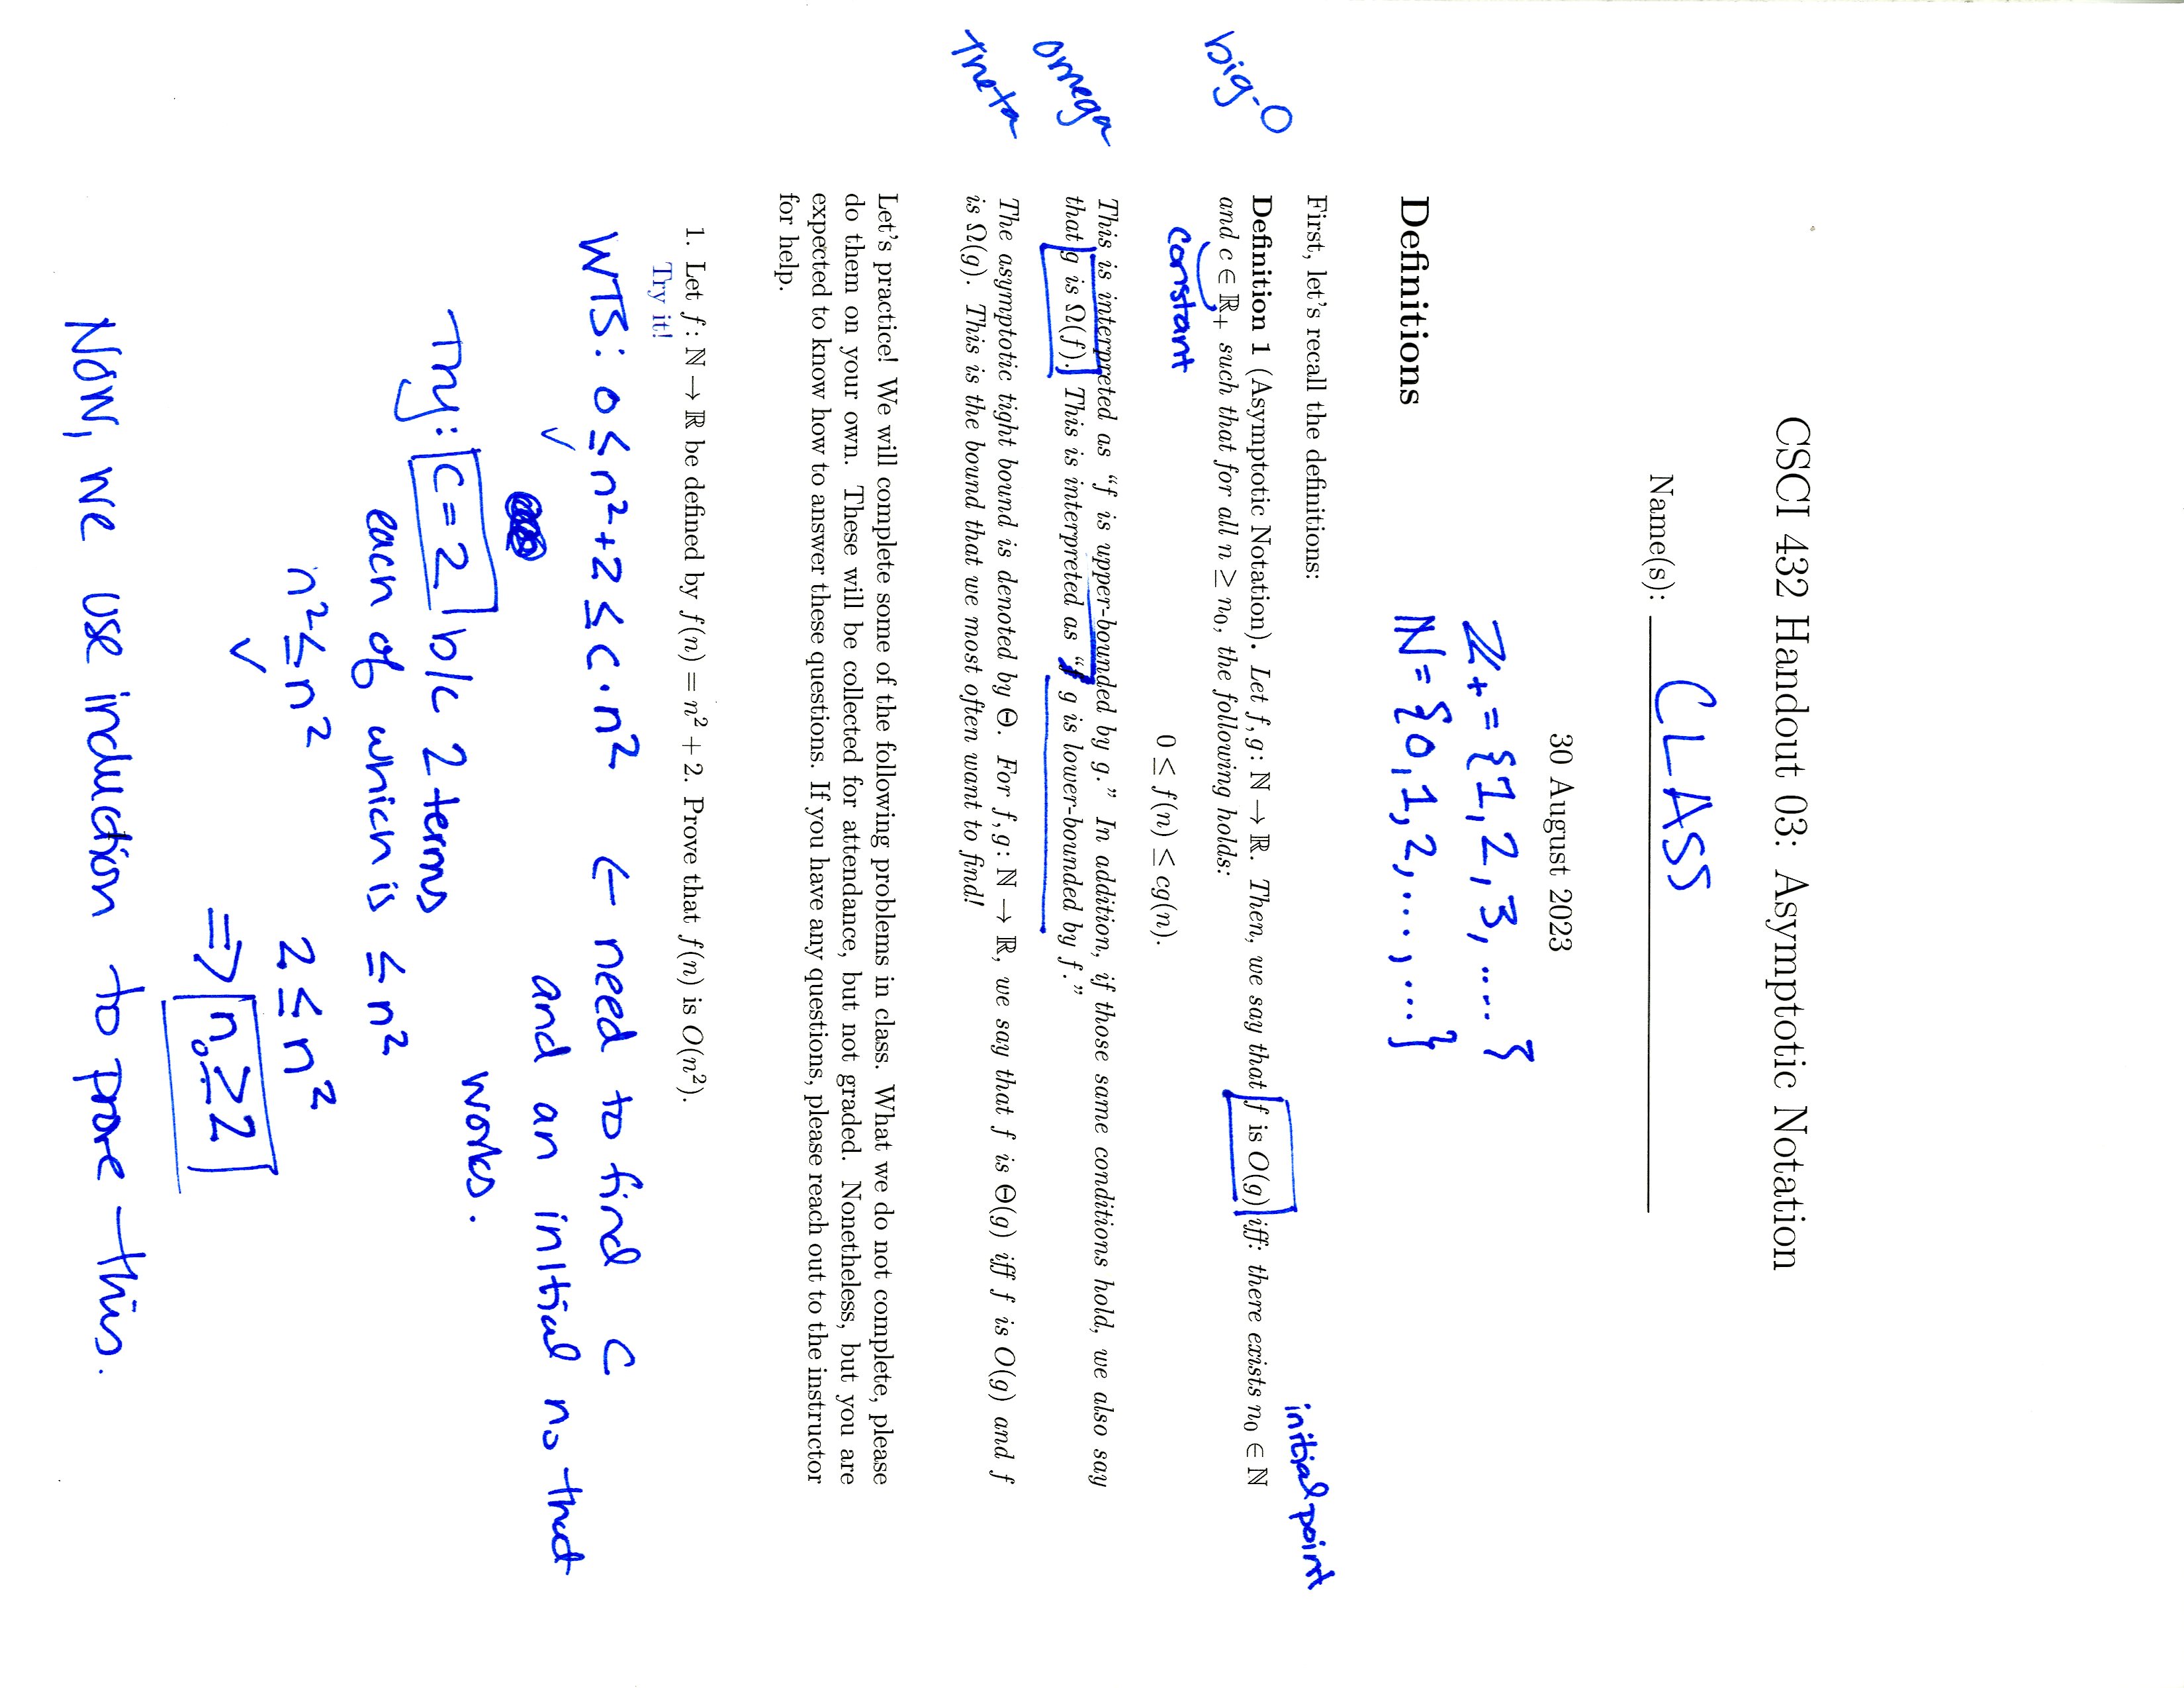 CSCI 432 Handout 03: Asymptotic Notation
Name(s): CLASS
30 August 2023
ℤ₊ = {1, 2, 3, .... }
Definitions
ℕ = {0, 1, 2, ..., ...}
First, let's recall the definitions:
initial point
big-O
Definition 1 (Asymptotic Notation). Let f, g: ℕ → ℝ. Then, we say that f is O(g) iff: there exists n₀ ∈ ℕ
and c ∈ ℝ₊ such that for all n ≥ n₀, the following holds:
constant
0 ≤ f(n) ≤ cg(n).
omega
This is interpreted as “f is upper-bounded by g.” In addition, if those same conditions hold, we also say
that g is Ω(f). This is interpreted as “ g is lower-bounded by f.”
Theta
The asymptotic tight bound is denoted by Θ. For f, g: ℕ → ℝ, we say that f is Θ(g) iff f is O(g) and f
is Ω(g). This is the bound that we most often want to find!
Let's practice! We will complete some of the following problems in class. What we do not complete, please
do them on your own. These will be collected for attendance, but not graded. Nonetheless, but you are
expected to know how to answer these questions. If you have any questions, please reach out to the instructor
for help.
1. Let f: ℕ → ℝ be defined by f(n) = n² + 2. Prove that f(n) is O(n²).
Try it!
WTS: 0 ≤ n² + 2 ≤ c · n² ← need to find c
✓ and an initial n₀ that
works.
Try: c = 2 b/c 2 terms
each of which is ≤ n²
n² ≤ n² 2 ≤ n²
✓ ⇒ n₀ ≥ 2
Now, we use induction to prove this.